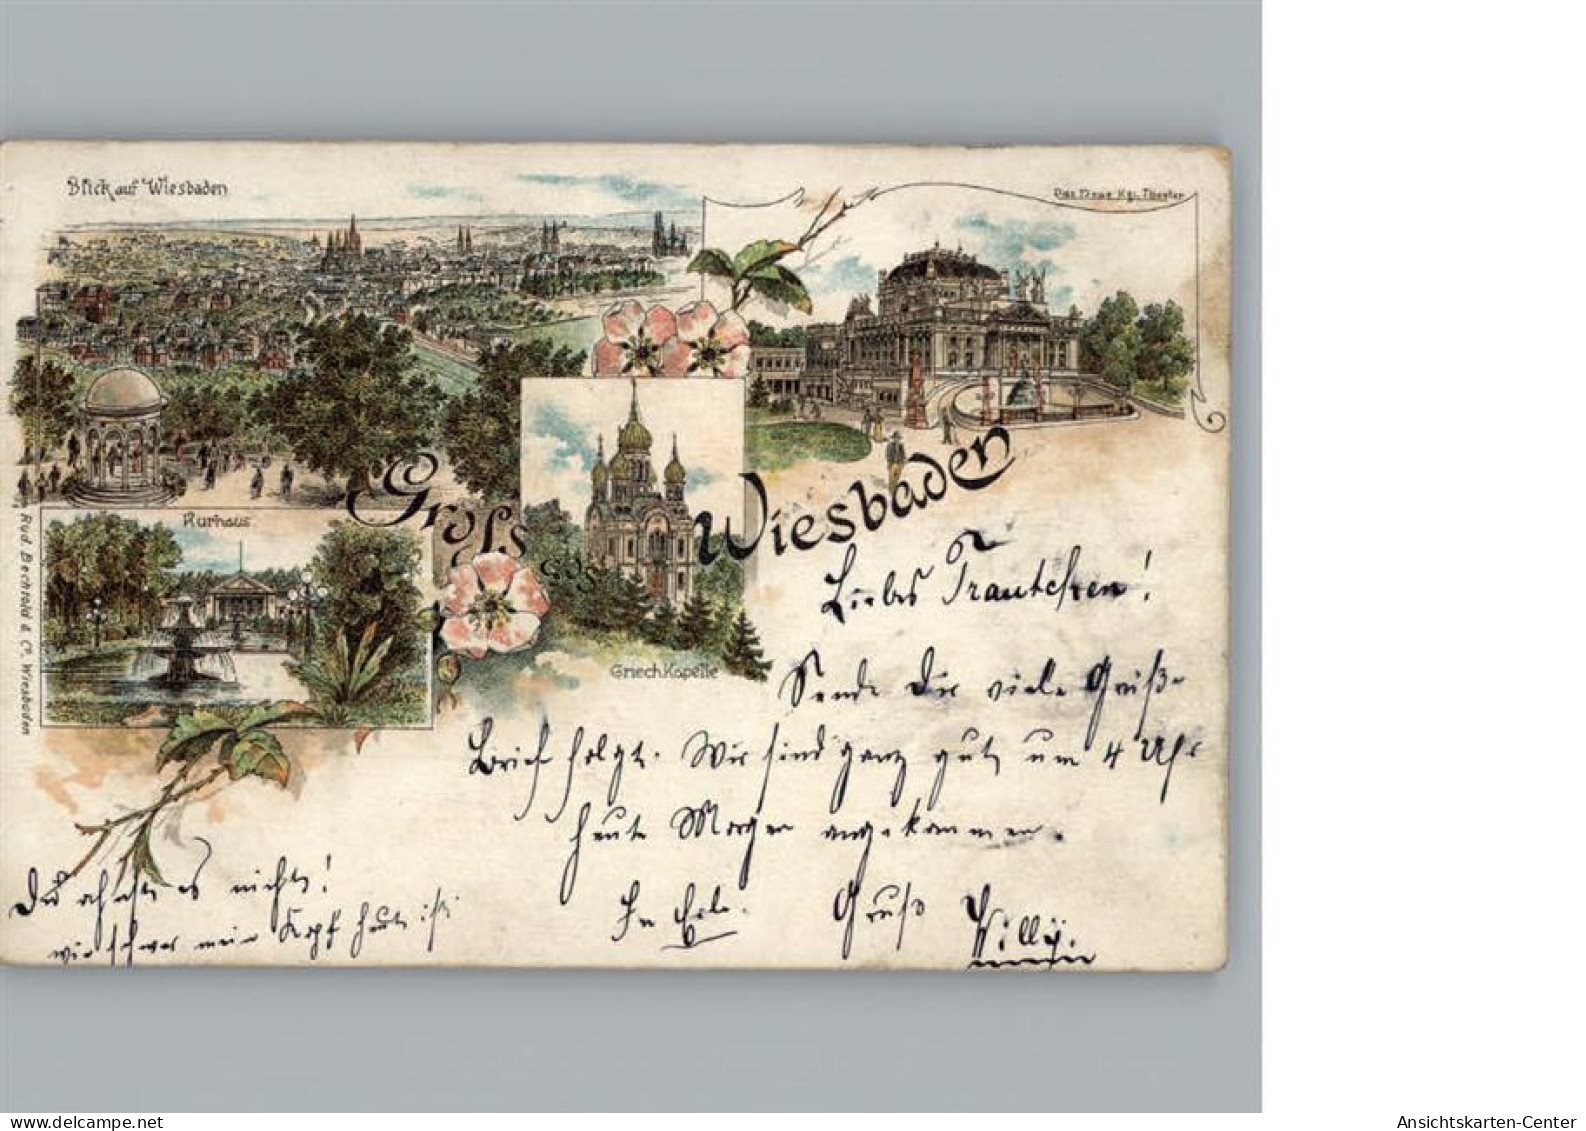 Blick auf Wiesbaden
Das Neue Kgl. Theater
Kurhaus
Gruss aus Wiesbaden
Griech. Kapelle
Rud. Bechtold & Co. Wiesbaden
Liebes Trautchen!
Sende Dir viele Grüße
Brief folgt. Wir sind ganz gut um 4 Uhr
heute Morgen angekommen.
In Eile. Gruß Willÿ.
Du ahnst es nicht!
wie schwer mein Kopf heute ist
www.delcampe.net
tobu26
Ansichtskarten-Center